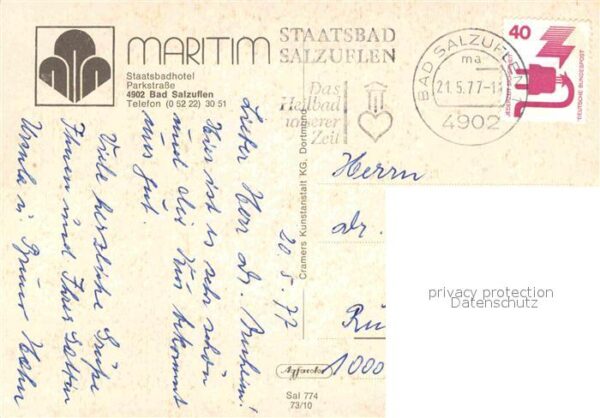 MARITIM
Staatsbadhotel
Parkstraße
4902 Bad Salzuflen
Telefon (0 52 22) 30 51
STAATSBAD
SALZUFLEN
Das
Heilbad
unserer
Zeit
BAD SALZUFLEN
ma
21.5.77-1
4902
40
JEDERZEIT SICHERHEIT
DEUTSCHE BUNDESPOST
20.5.77
Lieber Herr Dr.
Hier ist es sehr schön
und die Kur bekommt
uns gut.
Viele herzliche Grüße
Ihnen und Ihrer Gattin
Ursula u. Hahn
Cramers Kunstanstalt KG. Dortmund
Herrn
dr.
Rü
1000
privacy protection
Datenschutz
Agfacolor
Sal 774
73/10